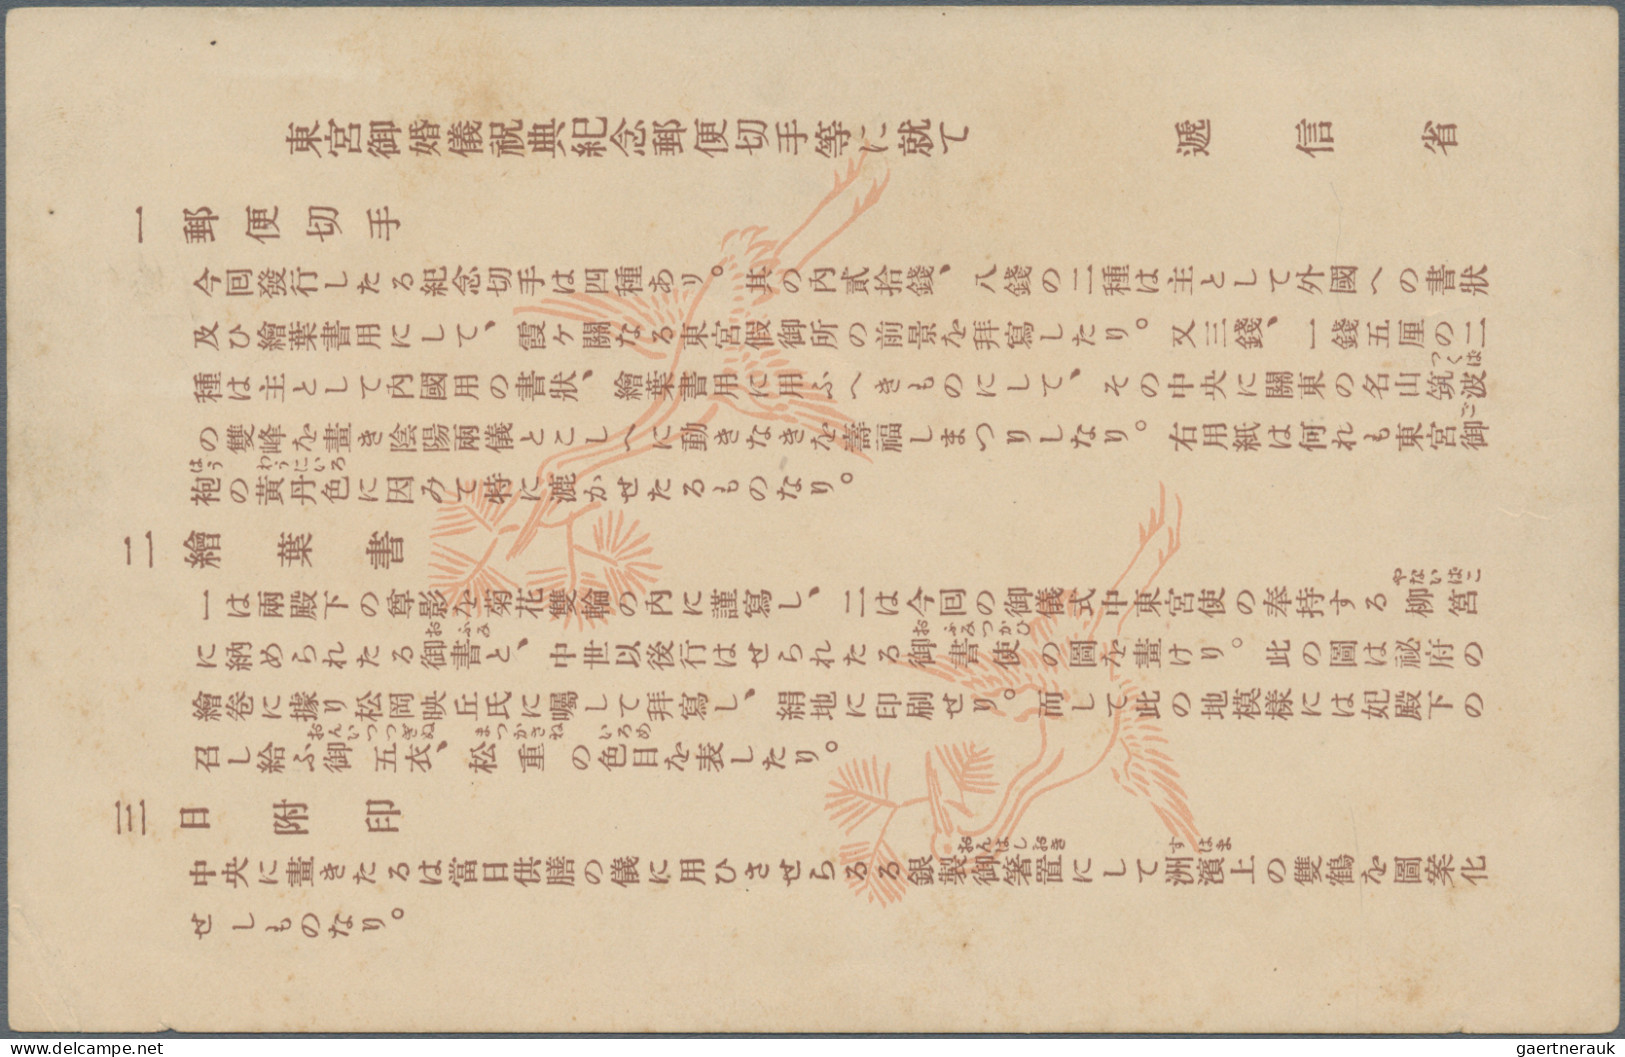 東宮御婚儀祝典紀念郵便切手等に就て
遞信省
一 郵便切手
今回發行したる紀念切手は四種あり。其の内貳拾錢、八錢の二種は主として外國への書狀
及ひ繪葉書用にして、霞ヶ關なる東宮假御所の前景を拜寫したり。又三錢、一錢五厘の二
種は主として内國用の書狀、繪葉書用に用ふへきものにして、その中央に關東の名山筑波
つくは
の雙峰を畫き陰陽兩儀とこしへに動きなきを壽福しまつりしなり。右用紙は何れも東宮御
ご
袍の黃丹色に因みて特に漉かせたるものなり。
はう わうにいろ
二 繪葉書
一は兩殿下の尊影を菊花雙輪の内に謹寫し、二は今回の御儀式中東宮使の奉持する柳筥
やないばこ
に納められたる御書と、中世以後行はせられたる御書使の圖を畫けり。此の圖は祕府の
おふみ おふみつかひ
繪卷に據り松岡映丘氏に囑して拜寫し、絹地に印刷せり。而して此の地模樣には妃殿下の
召し給ふ御五衣、松重の色目を表したり。
おんいつつぎぬ まつかさね いろめ
三 日附印
中央に畫きたるは當日供膳の儀に用ひさせらるる銀製御箸置にして洲濱上の雙鶴を圖案化
おんはしおき すはま
せしものなり。
www.delcampe.net
gaertnerauk